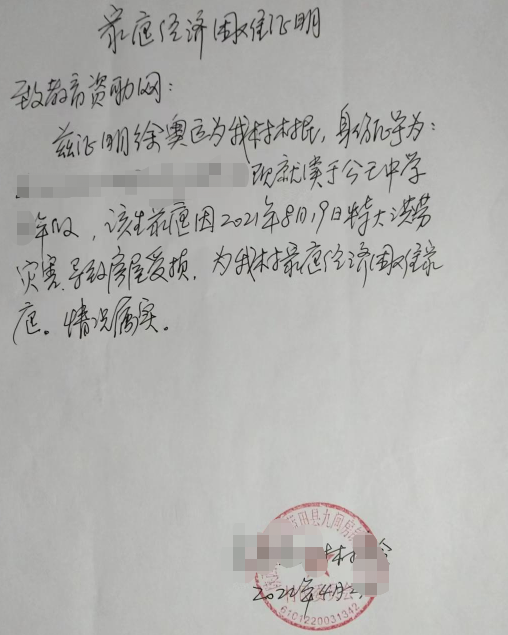 家庭经济困难证明
致教育资助网：
兹证明徐奥运为我村村民，身份证号为：
现就读于公王中学
年级，该生家庭因2021年8月19日特大洪涝
灾害，导致房屋受损，为我村家庭经济困难家
庭。情况属实。
蓝田县九间房
村
2022年4月
6101220031342